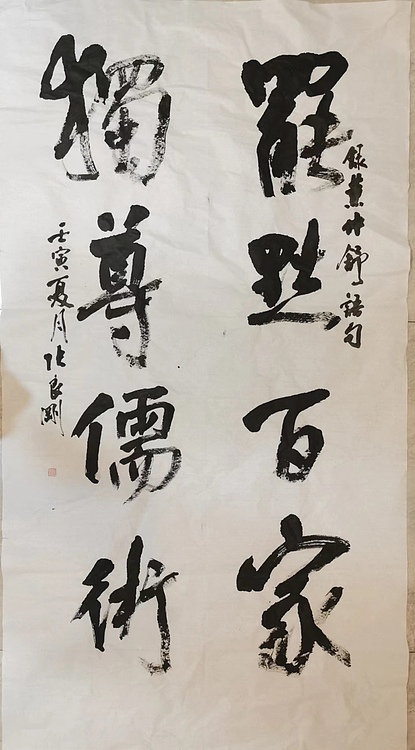 錄董仲舒語句
罷黜百家
獨尊儒術
壬寅夏月張良剛